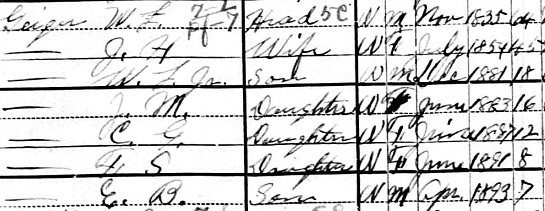 Geiger W. L. Head W M Nov 1835 64
— J. H Wife W F July 1854 45
— W. L. Jr. Son W M Dec 1881 18
— J. M. Daughter W F June 1883 16
— C. G. Daughter W F June 1887 12
— F S Daughter W F June 1891 8
— E. B. Son W M Apr 1893 7